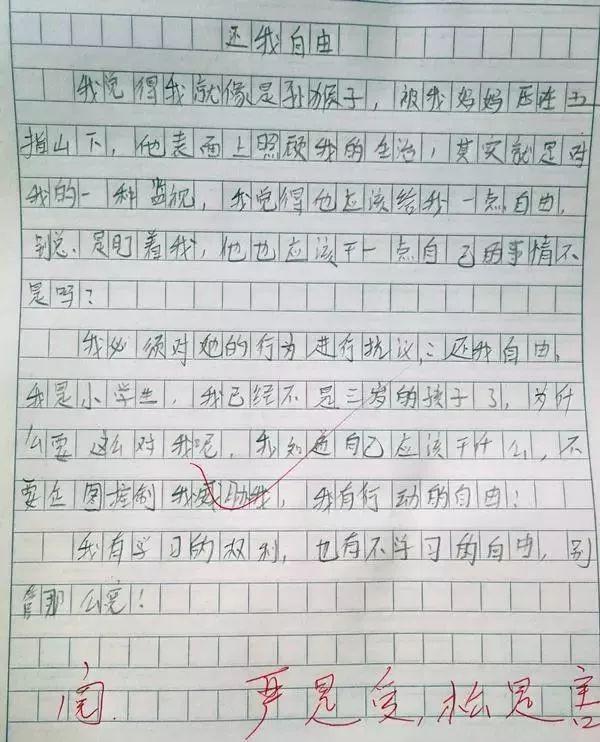 还我自由
我觉得我就像是孙猴子，被我妈妈压在五
指山下，他表面上照顾我的生活，其实就是对
我的一种监视，我觉得他应该给我一点自由，
别总是盯着我，他也应该干一点自己的事情不
是吗？
我必须对她的行为进行抗议，：还我自由，
我是小学生，我已经不是三岁的孩子了，为什
么要这么对我呢，我知道自己应该干什么，不
要企图控制我威胁我，我有行动的自由！
我有学习的权利，也有不学习的自由，别
管那么宽！
阅 严是爱，松是害